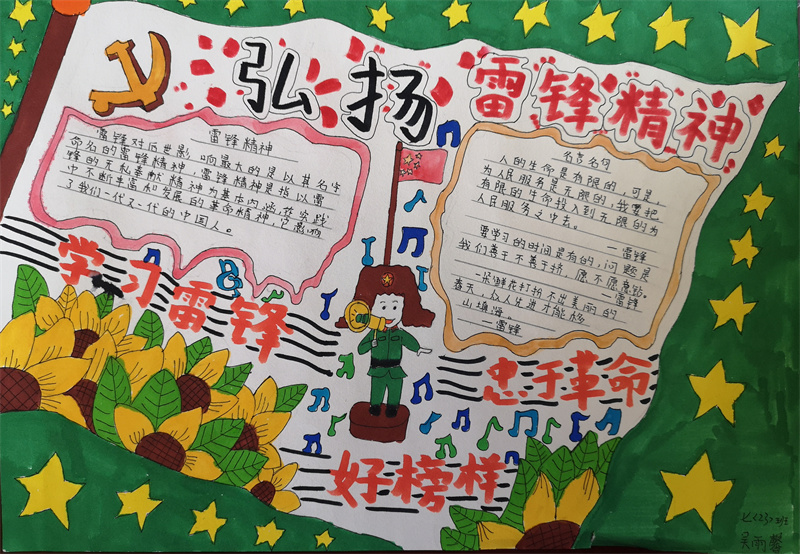 弘扬雷锋精神
雷锋精神
雷锋对后世影响最大的是以其名字
命名的雷锋精神，雷锋精神是指以雷
锋的无私奉献精神为基本内涵在实践
中不断丰富和发展的革命精神，它影响
了我们一代又一代的中国人。
名言名句
人的生命是有限的，可是，
为人民服务是无限的，我要把
有限的生命投入到无限的为
人民服务之中去。
—雷锋
要学习的时间是有的，问题是
我们善于不善于挤，愿不愿意钻。
—雷锋
一朵鲜花打扮不出美丽的
春天，众人先进才能移
山填海。
—雷锋
学习雷锋
忠于革命
好榜样
七(23)班